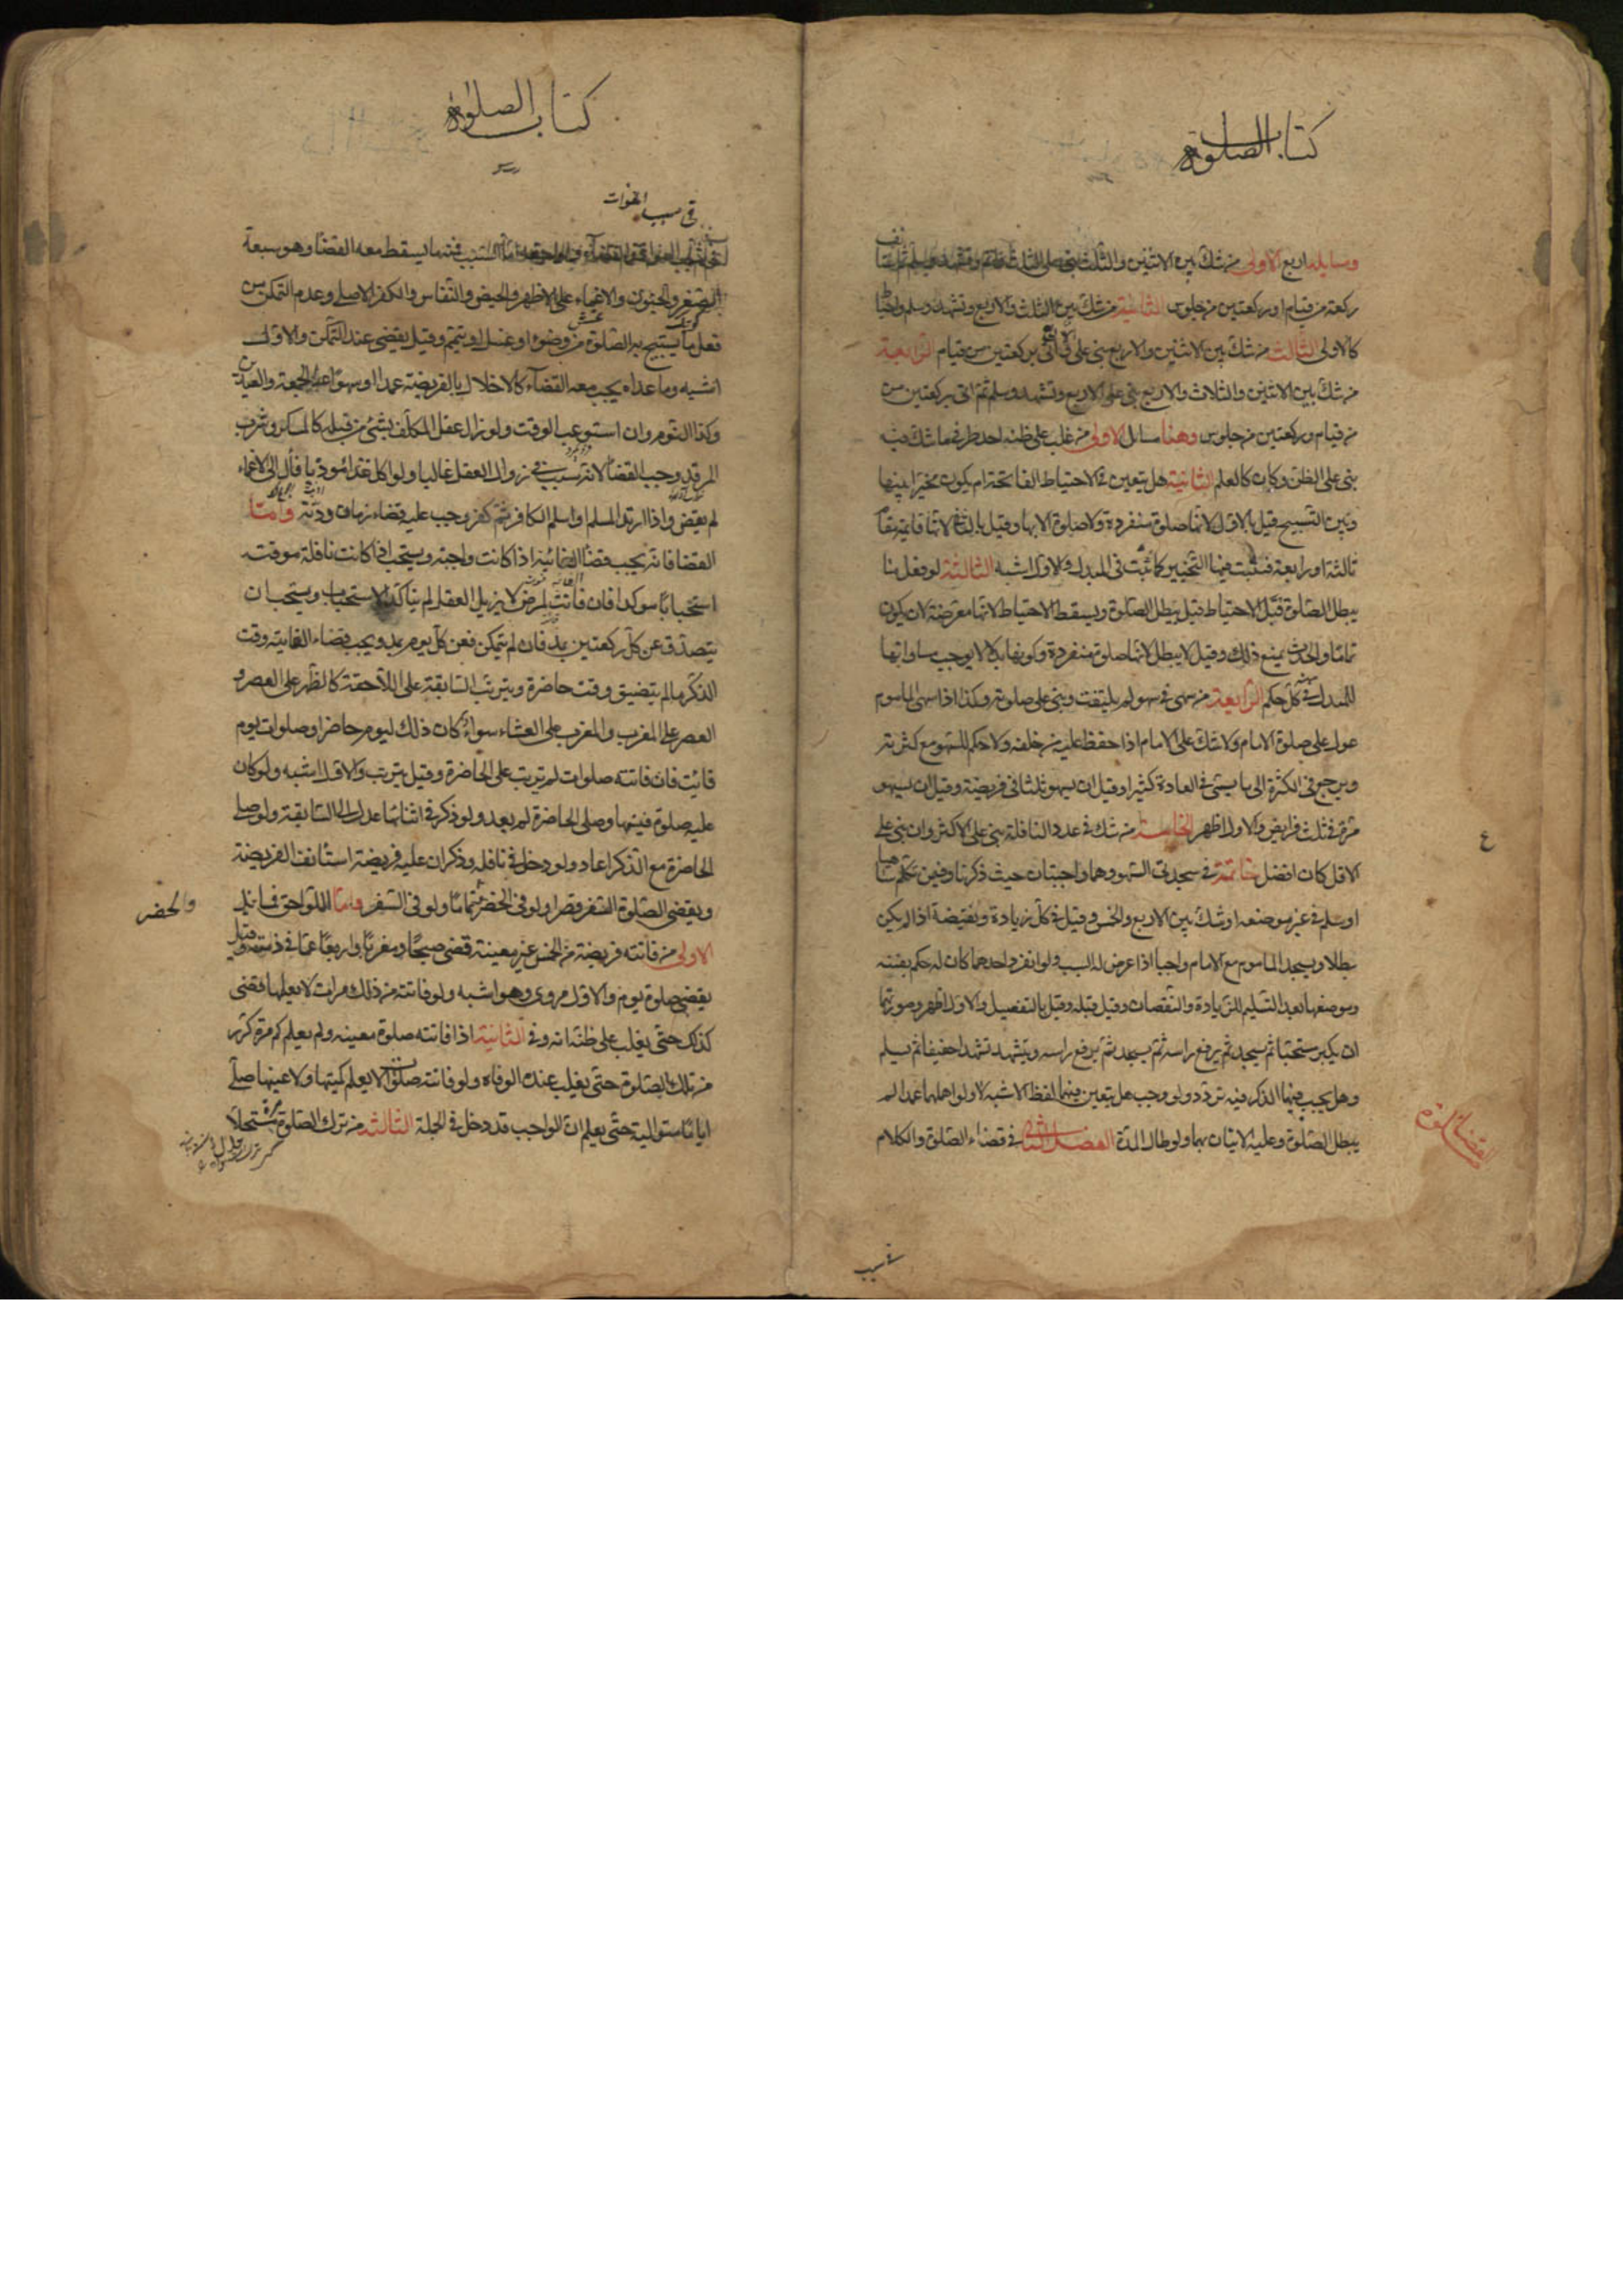 كتاب الصلوة
ومسايله اربع الاولى من شك بين الاثنين والثلث بنى على الثلث واتم وتشهد وسلم ثم استانف
ركعة من قيام او ركعتين من جلوس الثانية من شك بين الثلث والاربع وتشهد وسلم واحتاط
كالاولى الثالث من شك بين الاثنين والاربع بنى على اتى بركعتين من قيام الرابعة
من شك بين الاثنين والثلاث والاربع بنى على الاربع وتشهد وسلم ثم اتى بركعتين من
من قيام وركعتين من جلوس وهنا مسائل الاولى من غلب على ظنه احد طرفى ما شك فيه
بنى على الظن وكان كالعلم الثانية هل يتعين فى الاحتياط الفاتحة ام يكون مخيرا بينها
وبين التسبيح قيل بالاول لانها صلوة منفردة ولا صلوة الا بها وقيل بالثانى لانها قايمة مقام
ثالثة او رابعة فثبت فيها التخيير كما ثبت فى المبدل والاول اشبه الثالثة لو فعل ما
يبطل الصلوة قبل الاحتياط قيل يبطل الصلوة ويسقط الاحتياط لانها معرضة لان يكون
تماما والحدث يمنع ذلك وقيل لا يبطل لانها صلوة منفردة وكونها بدلا لا يوجب مساواتها
للمبدل فى كل حكم الرابعة من سهى فى سهو لم يلتفت وبنى على صلوته وكذا اذا سهى الماموم
عول على صلوة الامام ولا شك على الامام اذا حفظ عليه من خلفه ولا حكم للسهو مع كثرته
ويرجع فى الكثرة الى ما يسمى فى العادة كثيرا وقيل ان يسهو ثلثا فى فريضة وقيل ان يسهو
مرة فى ثلث فرايض والاول اظهر الخامسة من شك فى عدد النافلة بنى على الاكثر وان بنى على
الاقل كان افضل خاتمة فى سجدتى السهو وهما واجبتان حيث ذكرنا وفيمن تكلم ساهيا
او سلم فى غير موضعه او شك بين الاربع والخمس وقيل فى كل زيادة ونقيضة اذا لم يكن
مبطلا ويسجد الماموم مع الامام واجبا اذا عرض له السبب ولو انفرد احدهما كان له حكم نفسه
وموضعهما بعد التسليم للزيادة والنقصان وقيل قبله وقيل بالتفصيل والاول اظهر وصورتهما
ان يكبر مستحبا ثم يسجد ثم يرفع راسه ثم يسجد ثم يرفع راسه ويتشهد تشهدا خفيفا ثم يسلم
وهل يجب فيهما الذكر فيه تردد ولو وجب هل يتعين فيهما لفظ الاشبه لا ولو اهملهما عمدا لم
يبطل الصلوة وعليه الاتيان بهما ولو طال المدة الفصل الثانى فى قضاء الصلوة والكلام
ع
كتاب الصلوة
فى سبب الفوات
اما السبب فمنه ما يسقط معه القضا وهو سبعة
الصغر والجنون والاغماء على الاظهر والحيض والنفاس والكفر الاصلى وعدم التمكن من
فعل ما يستبيح به الصلوة من وضوء او غسل او تيمم وقيل يقضى عند التمكن والاول
اشبه وما عداه يجب معه القضآء كالاخلال بالفريضة عمدا او سهوا عدا الجمعة والعيدين
وكذا النوم وان استوعب الوقت ولو زال عقل المكلف بشئ من قبله كالمسكر وشرب
المرقد وجب القضا لانه سبب فى زوال العقل غالبا ولو اكل غذاء موذيا فأل الى الاغماء
لم يقض واذا ارتد المسلم او اسلم الكافر ثم كفر وجب عليه قضاء زمان ردته واما
القضا فانه يجب قضا الفائتة اذا كانت واجبة ويستحب اذا كانت نافلة موقته
استحبابا موكدا فان فاتت لمرض لا يزيل العقل لم يتاكد الاستحباب ويستحب ان
يتصدق عن كل ركعتين بمد فان لم يتمكن فعن كل يوم بمد ويجب قضاء الفايتة وقت
الذكر ما لم يتضيق وقت حاضرة ويترتب السابقة على اللاحقة كالظهر على العصر و
العصر على المغرب والمغرب على العشاء سواء كان ذلك ليوم حاضر او صلوات يوم
فائت فان فاتته صلوات لم تترتب على الحاضرة وقيل يترتب والاول اشبه ولو كان
عليه صلوة فنسيها وصلى الحاضرة لم يعد ولو ذكر فى اثنائها عدل الى السابقة ولو صلى
الحاضرة مع الذكر اعاد ولو دخل فى نافله وذكر ان عليه فريضة استانف الفريضة
ويقضى الصلوة السفر قصرا ولو فى الحضر تماما ولو فى السفر واما اللواحق فمسايل
والحضر
الاولى من فاتته فريضة من الخمس غير معينة قضى صبحا ومغربا واربعا عما فى ذمته وقيل
يقضى صلوة يوم والاول مروى وهو اشبه ولو فاتته من ذلك مرات لا يعلمها قضى
كذلك حتى يغلب على ظنه انه وفى الثانية اذا فاتته صلوة معينه ولم يعلم كم مرة كرر
من تلك الصلوة حتى يغلب عنده الوفاه ولو فاتته صلوات لا يعلم كميتها ولا عينها صلى
اياما متوالية حتى يعلم ان الواجب قد دخل فى الجملة الثالثة من ترك الصلوة مستحلا